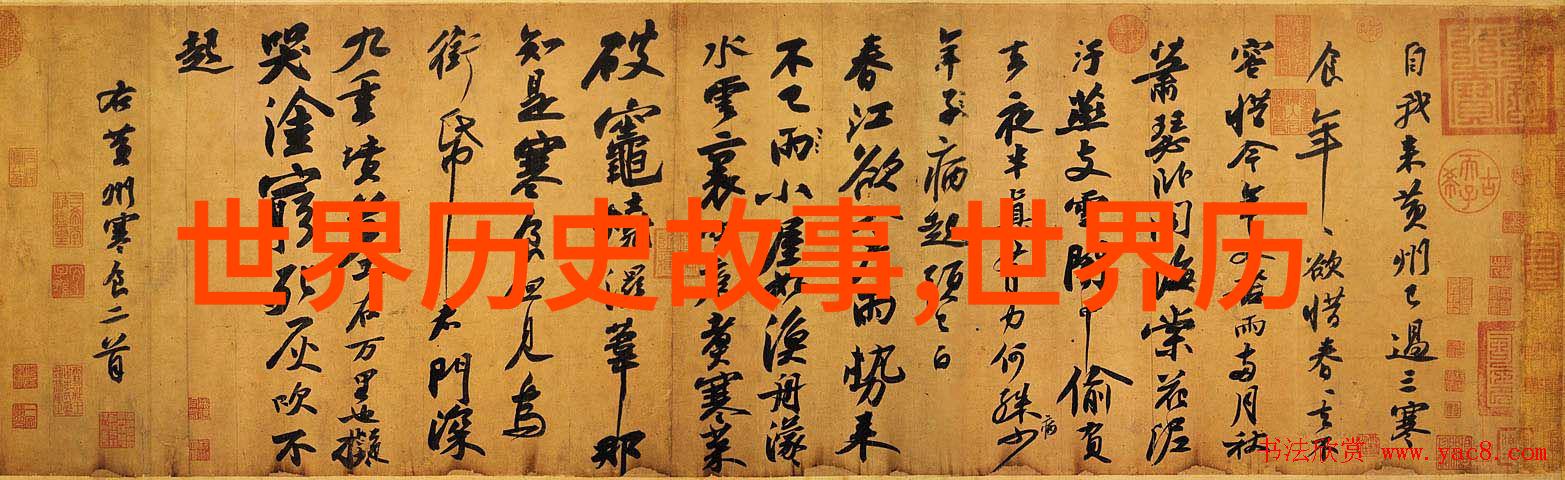 自我来黄州已過三寒
食年〻欲惜春〻去不
容惜今年又苦雨兩月秋
蕭瑟卧聞海棠花泥
汙燕支雪闇中偷負
去夜半真有力何殊少
年子病起頭已白
病
春江欲入户雨勢来
不已雨小屋如漁舟濛
水雲裏空庖煮寒菜
破竈燒濕葦那
知是寒食但見烏
銜帋君門深
九重墳墓在万里也擬
哭塗窮死灰吹不
起
右黄州寒食二首
世界历史故事,世界历
书法欣赏 www.yac8.com